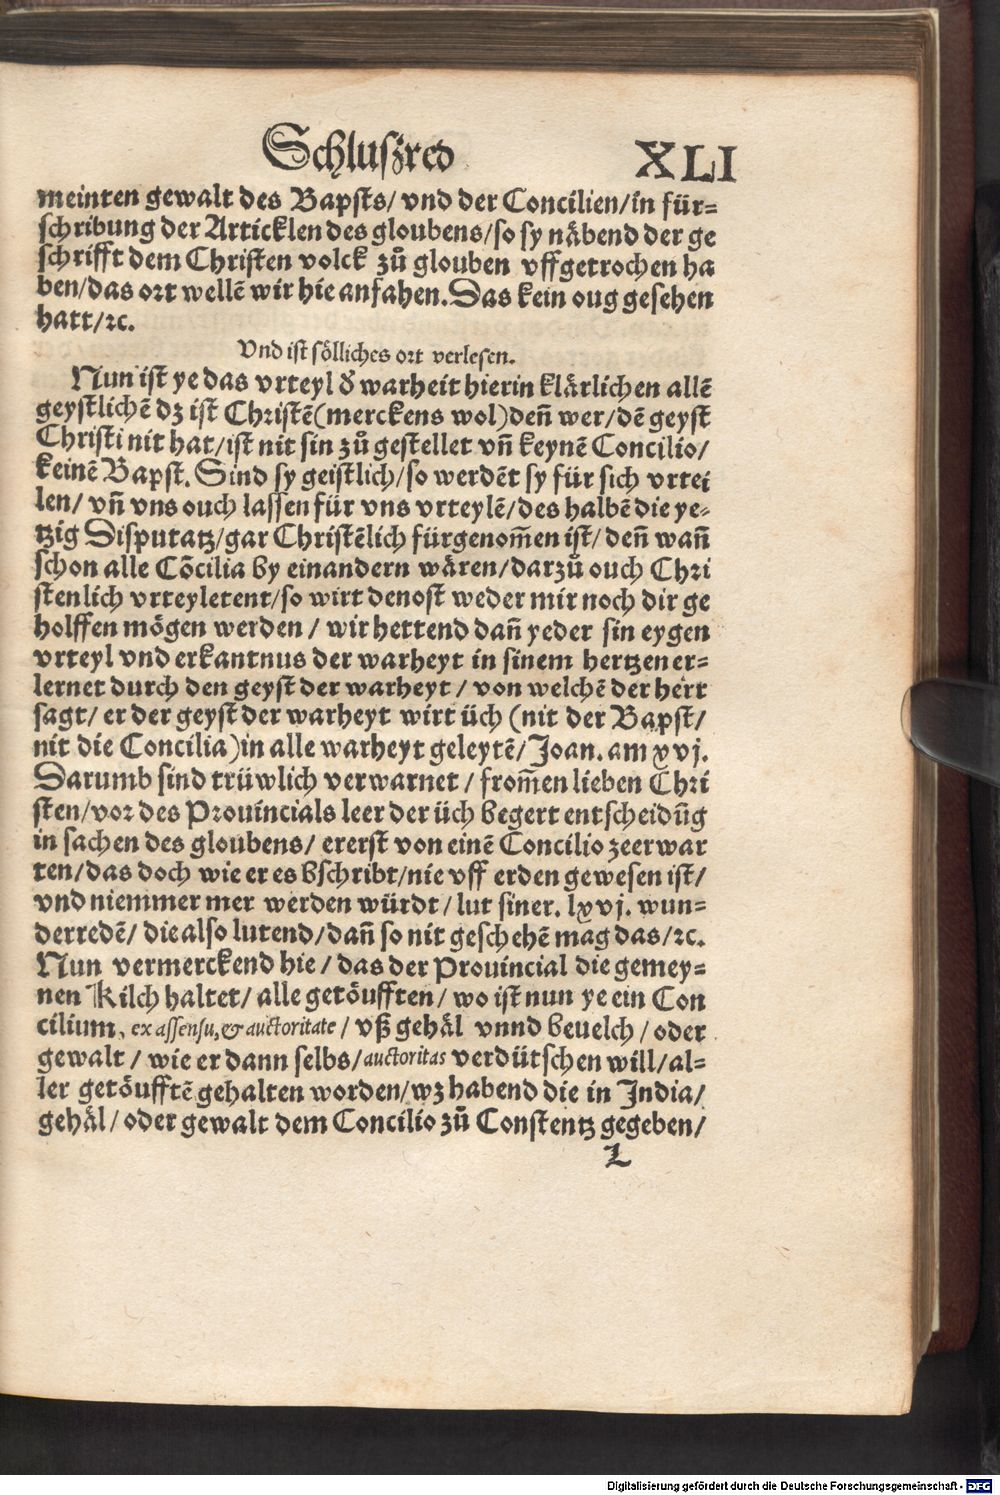 Schluszred XLI
meinten gewalt des Bapsts/ vnd der Concilien/in für⸗
schribung der Articklen des gloubens/so sy näbend der ge
schrifft dem Christen volck zů glouben vffgetrochen ha
ben/das ort wellē wir hie anfahen. Das kein oug gesehen
hatt/ꝛc.
Vnd ist sölliches ort verlesen.
Nun ist ye das vrteyl ď warheit hierin klärlichen allē
geystlichē dz ist Christē(merckens wol)deñ wer/dē geyst
Christi nit hat/ist nit sin zů gestellet vñ keynē Concilio/
keinē Bapst. Sind sy geistlich/so werdēt sy für sich vrtei
len/ vñ vns ouch lassen für vns vrteylē/des halbē die ye⸗
tzig Disputatz/gar Christēlich fürgenom̄en ist/ deñ wañ
schon alle Cōcilia by einandern wären/darzů ouch Chri
stenlich vrteyletent/so wirt denost weder mir noch dir ge
holffen mögen werden / wir hettend dañ yeder sin eygen
vrteyl vnd erkantnus der warheyt in sinem hertzen er⸗
lernet durch den geyst der warheyt / von welchē der herr
sagt/ er der geyst der warheyt wirt üch (nit der Bapst/
nit die Concilia)in alle warheyt geleytē/ Joan. am xvj.
Darumb sind trüwlich verwarnet / from̄en lieben Chri
sten/vor des Prouincials leer der üch begert entscheidūg
in sachen des gloubens/ ererst von einē Concilio zeerwar
ten/das doch wie er es bschribt/nie vff erden gewesen ist/
vnd niemmer mer werden würdt / lut siner. lxvj. wun⸗
derredē/ die also lutend/dañ so nit geschehē mag das/ꝛc.
Nun vermerckend hie / das der Prouincial die gemey⸗
nen Kilch haltet/ alle getöufften/ wo ist nun ye ein Con
cilium, ex assensu, & auctoritate / vß gehäl vnnd beuelch / oder
gewalt / wie er dann selbs/auctoritas verdütschen will/al⸗
ler getöufftē gehalten worden/wz habend die in India/
gehäl/ oder gewalt dem Concilio zů Constentz gegeben/
L
Digitalisierung gefördert durch die Deutsche Forschungsgemeinschaft - DFG